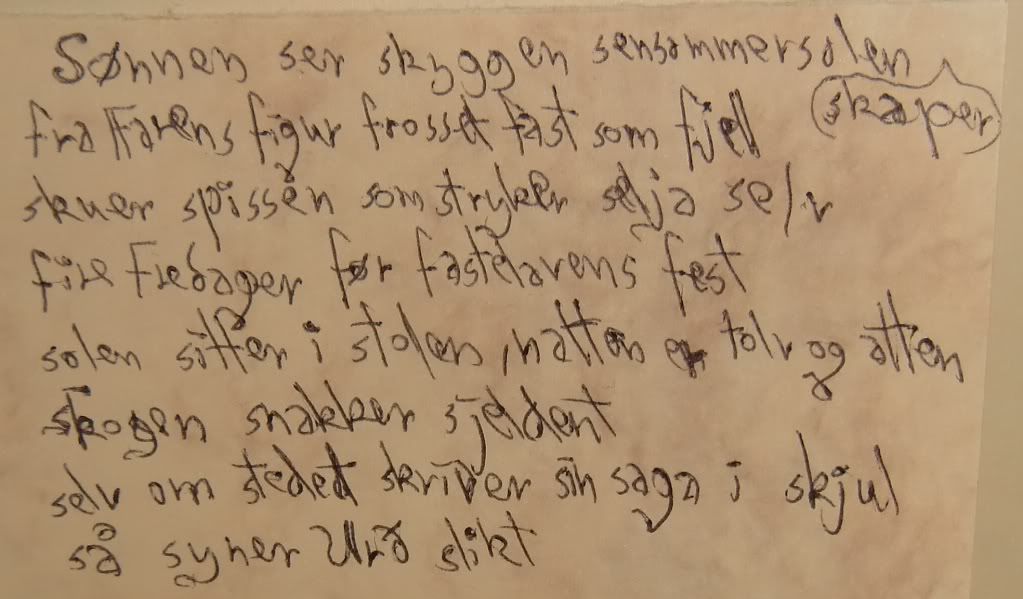 Sønnen ser skyggen sensommersolen skaper
fra Farens figur frosset fast som fjell
skuer spissen som stryker selja selv
fire Fredager før fastelavens fest
solen sitter i stolen, natten er tolv og atten
skogen snakker sjeldent
selv om stedet skriver sin saga i skjul
så syner Urd slikt